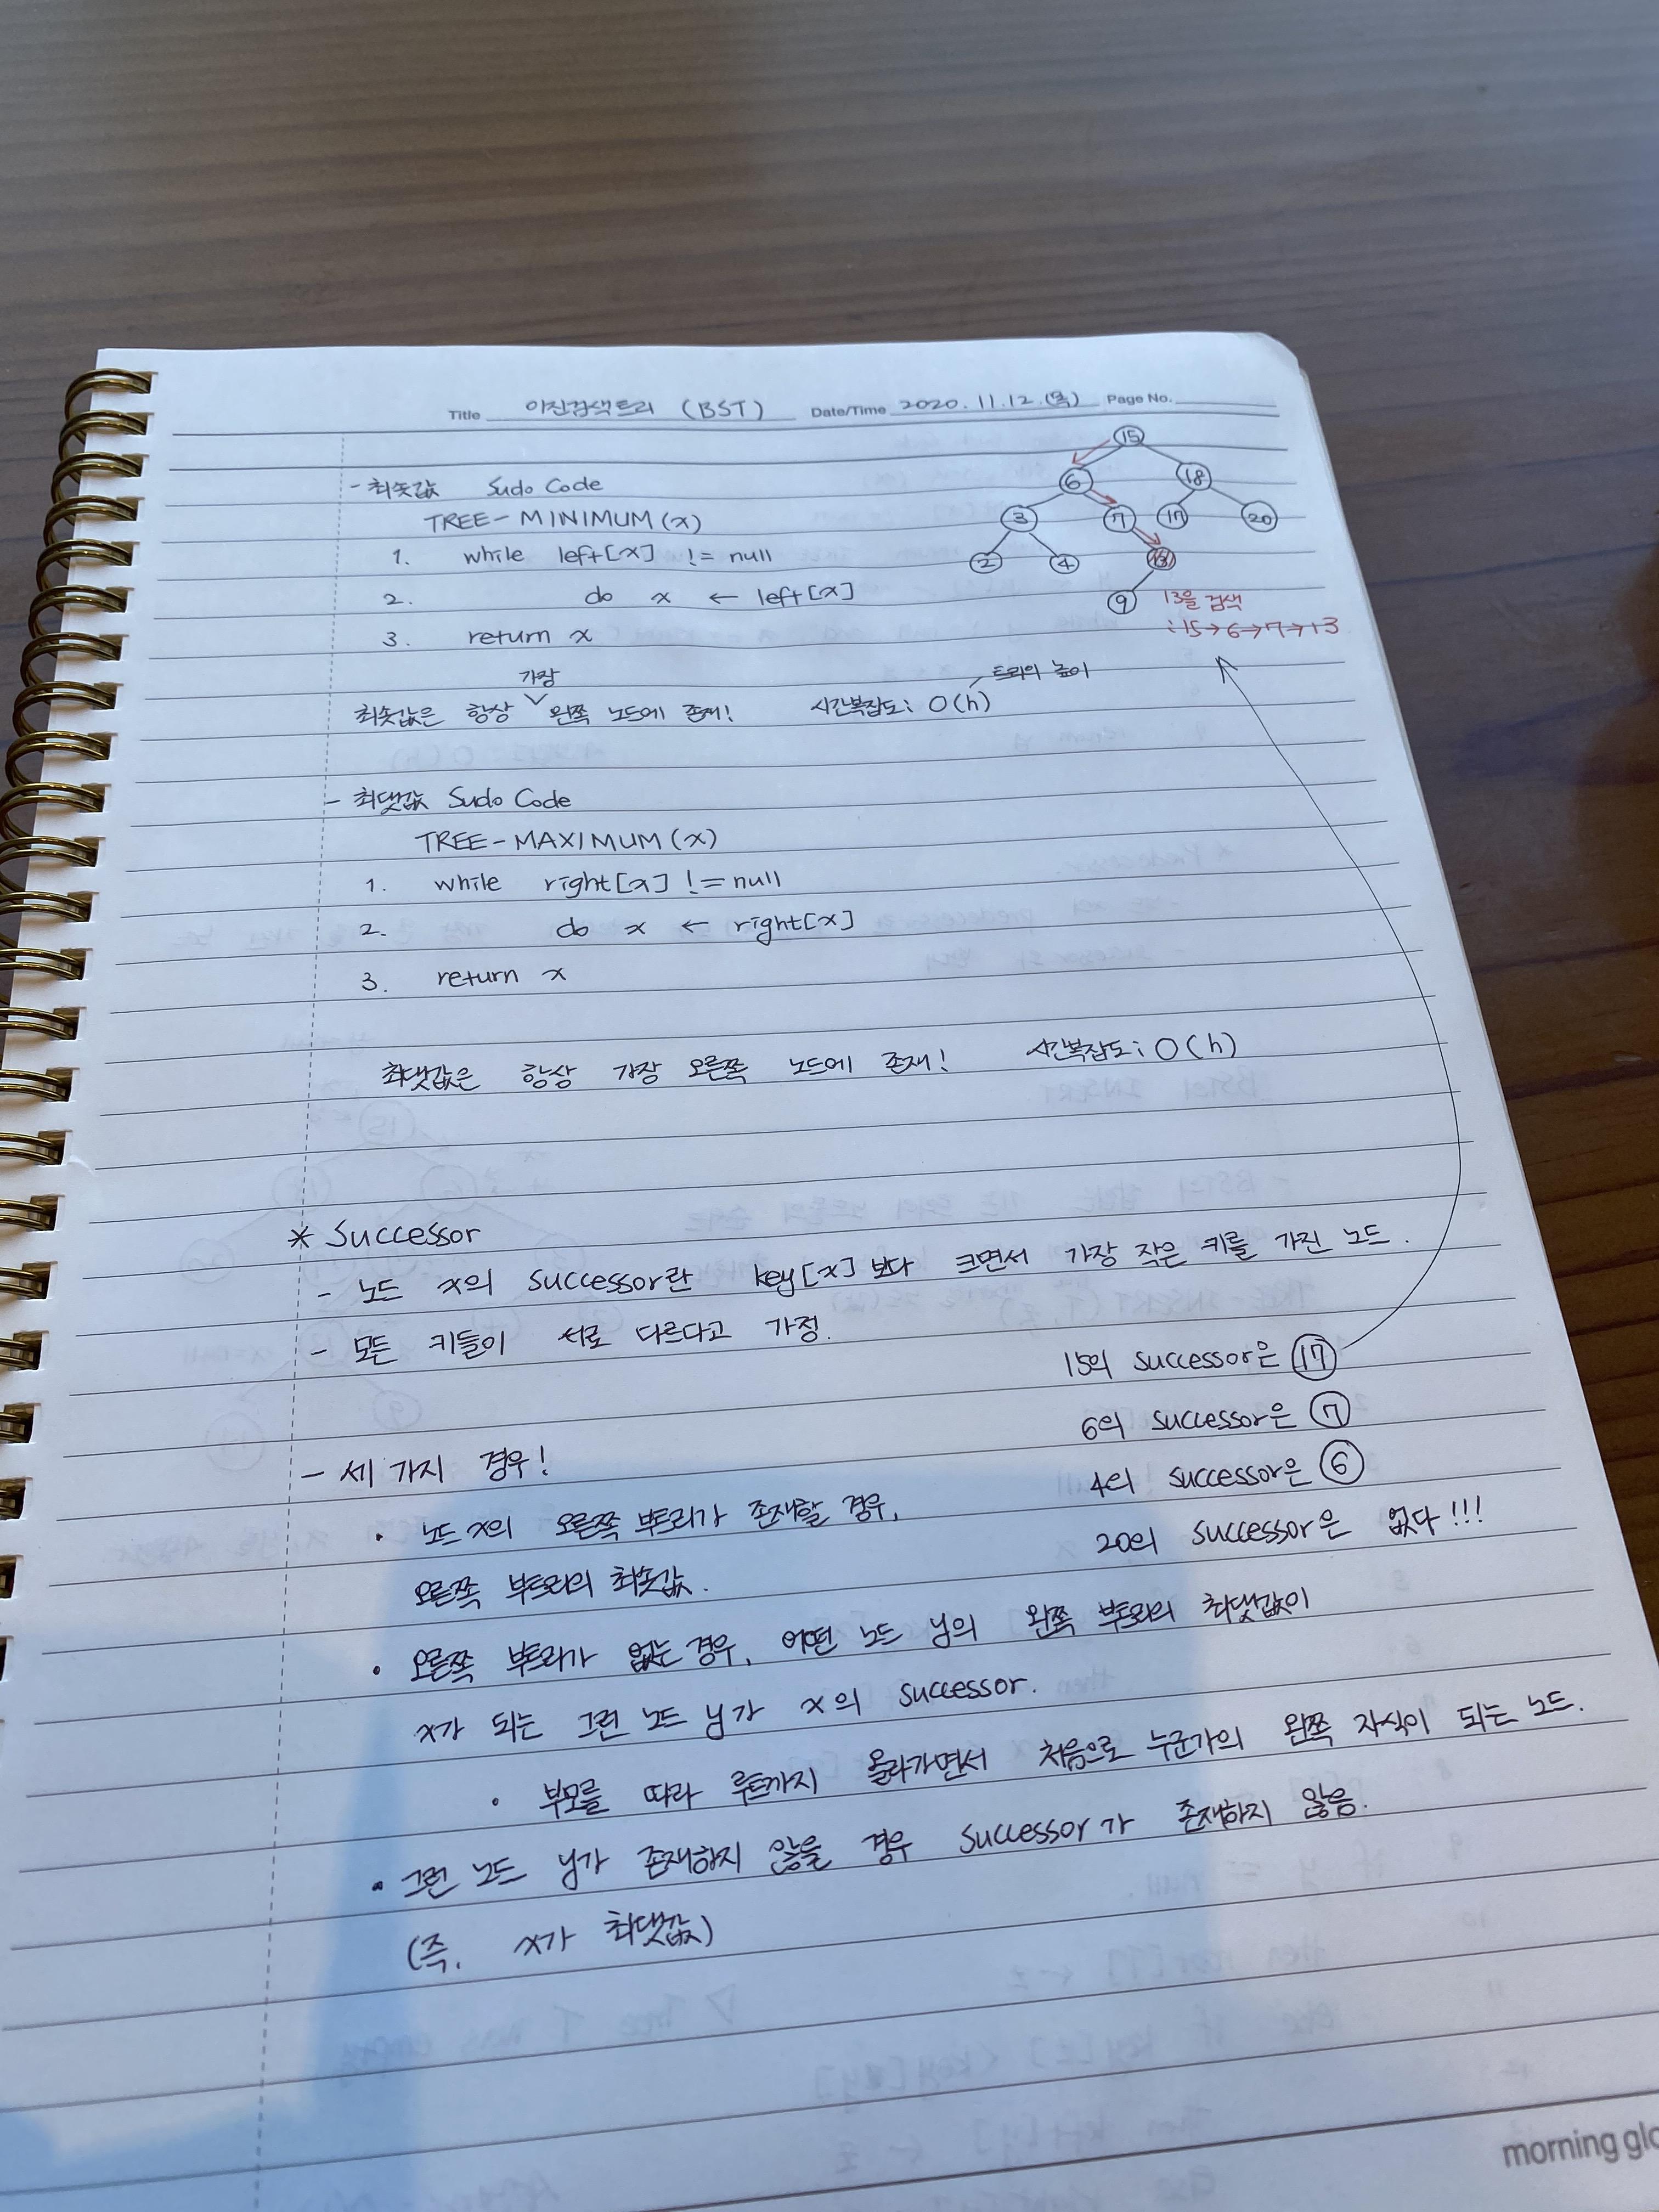 Title 이진검색트리 (BST) Date/Time 2020.11.12.(목) Page No.
15
6 18
3 7 17 20
2 4 13
9 13을 검색
: 15→6→7→13
- 최솟값 Sudo Code
TREE-MINIMUM(x)
1. while left[x] != null
2. do x ← left[x]
3. return x
가장
트리의 높이
최솟값은 항상 ∨ 왼쪽 노드에 존재! 시간복잡도: O(h)
- 최댓값 Sudo Code
TREE-MAXIMUM(x)
1. while right[x] != null
2. do x ← right[x]
3. return x
최댓값은 항상 가장 오른쪽 노드에 존재! 시간복잡도: O(h)
* Successor
- 노드 x의 successor란 key[x]보다 크면서 가장 작은 키를 가진 노드.
- 모든 키들이 서로 다르다고 가정.
15의 successor은 17
6의 successor은 7
4의 successor은 6
20의 successor은 없다!!!
- 세 가지 경우!
• 노드 x의 오른쪽 부트리가 존재할 경우,
오른쪽 부트리의 최솟값.
• 오른쪽 부트리가 없는 경우, 어떤 노드 y의 왼쪽 부트리의 최댓값이
x가 되는 그런 노드 y가 x의 successor.
• 부모를 따라 루트까지 올라가면서 처음으로 누군가의 왼쪽 자식이 되는 노드.
• 그런 노드 y가 존재하지 않을 경우 successor가 존재하지 않음.
(즉, x가 최댓값)